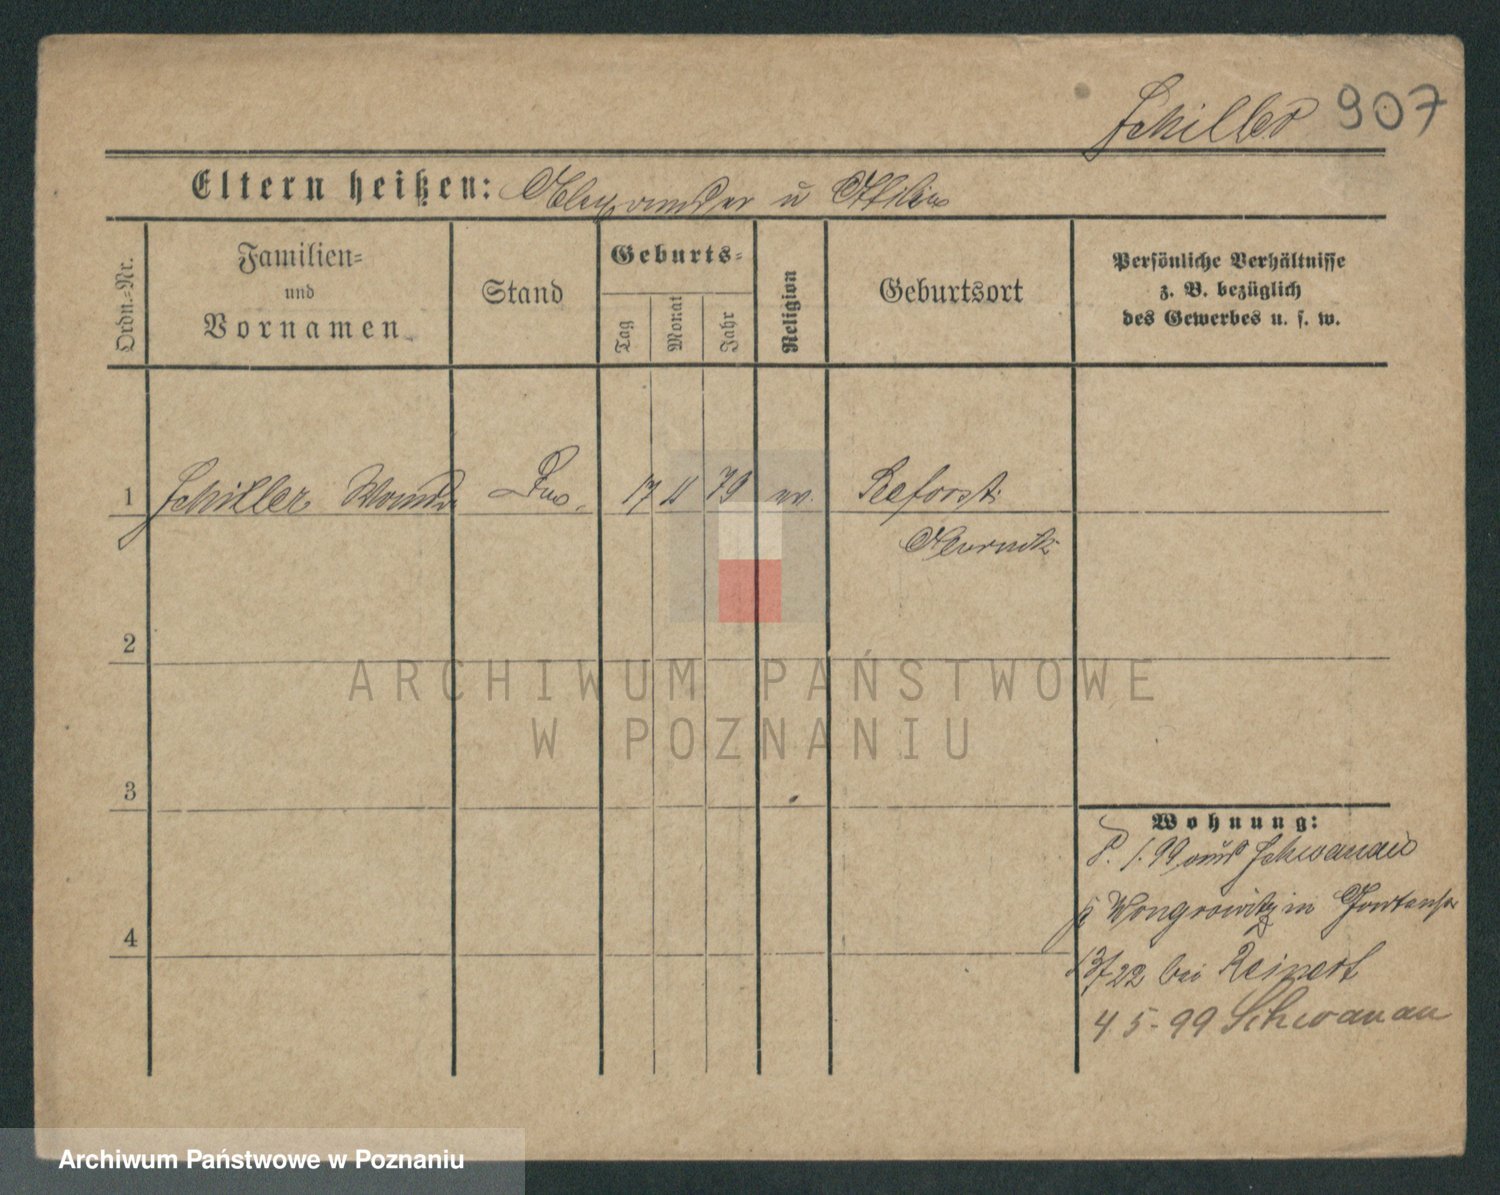 Schiller 907
Eltern heißen: Alexander u
Ordn.=Nr.
Familien=
und
Vornamen
Stand
Geburts=
Tag
Monat
Jahr
Religion
Geburtsort
Persönliche Verhältnisse
z. B. bezüglich
des Gewerbes u. s. w.
1 Schiller Wanda 17 79 ev. Seeforst
Obornik
2
3
4
Wohnung:
1.99 aus Schwanau
Wongrowitz in Gartenstr
13/22 bei Reinert
4 5-99 Schwanau
ARCHIWUM PAŃSTWOWE
W POZNANIU
Archiwum Państwowe w Poznaniu